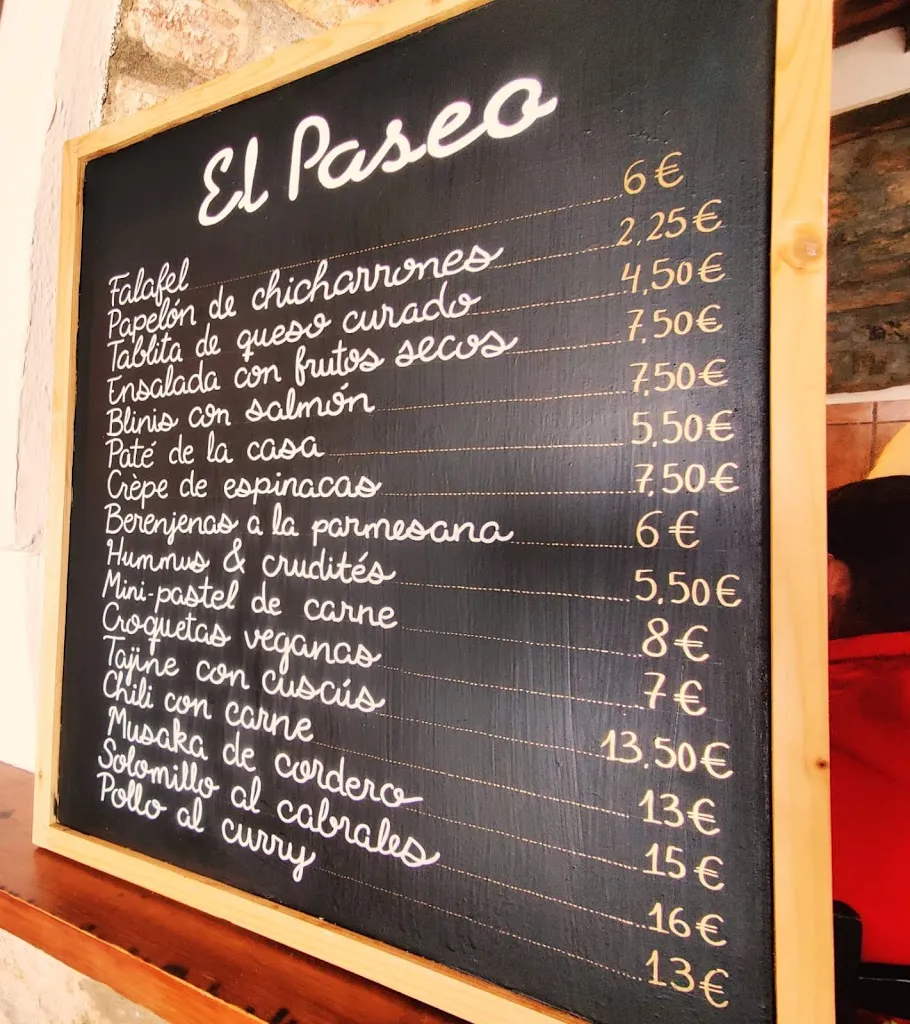 El Paseo
Falafel 6€
Papelón de chicharrones 2,25€
Tablita de queso curado 4,50€
Ensalada con frutos secos 7,50€
Blinis con salmón 7,50€
Paté de la casa 5,50€
Crèpe de espinacas 7,50€
Berenjenas a la parmesana 6€
Hummus & crudités 5,50€
Mini-pastel de carne 8€
Croquetas veganas 7€
Tajine con cuscús 13,50€
Chili con carne 13€
Musaka de cordero 15€
Solomillo al cabrales 16€
Pollo al curry 13€